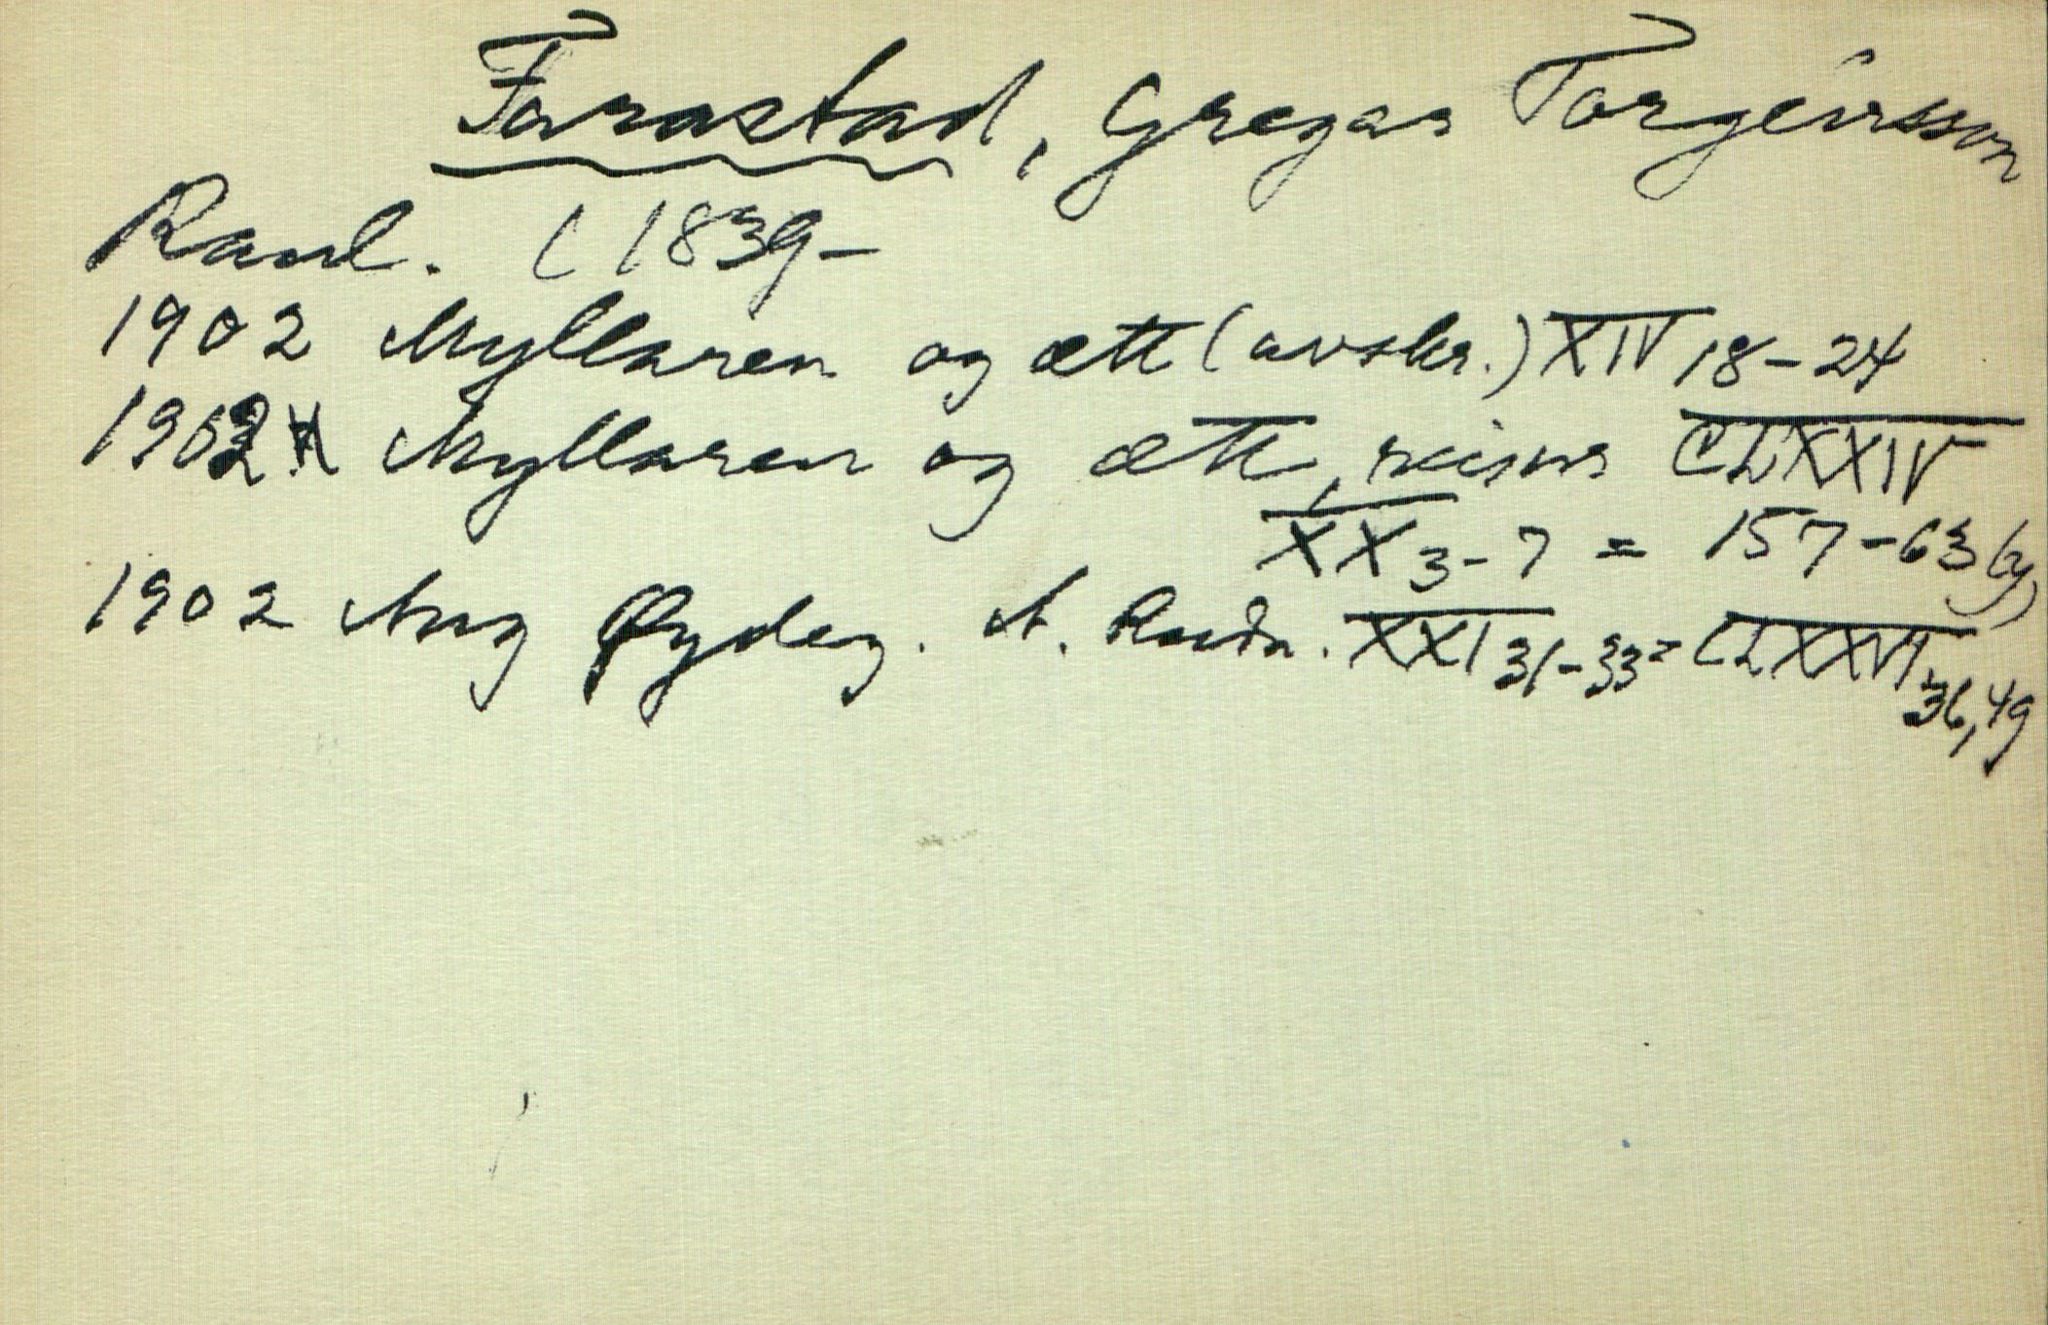 Farastad, Gregar Torgeirsson
Raul. (1839–
1902 Myllaren og ætt (avskr.) XIV 18–24
1902 Myllaren og ætt, reiser CLXXIV
XX 3–7 = 157–63
1902 Aug Øydeg. A. XXI 31–33 = CLXXVI 36,49